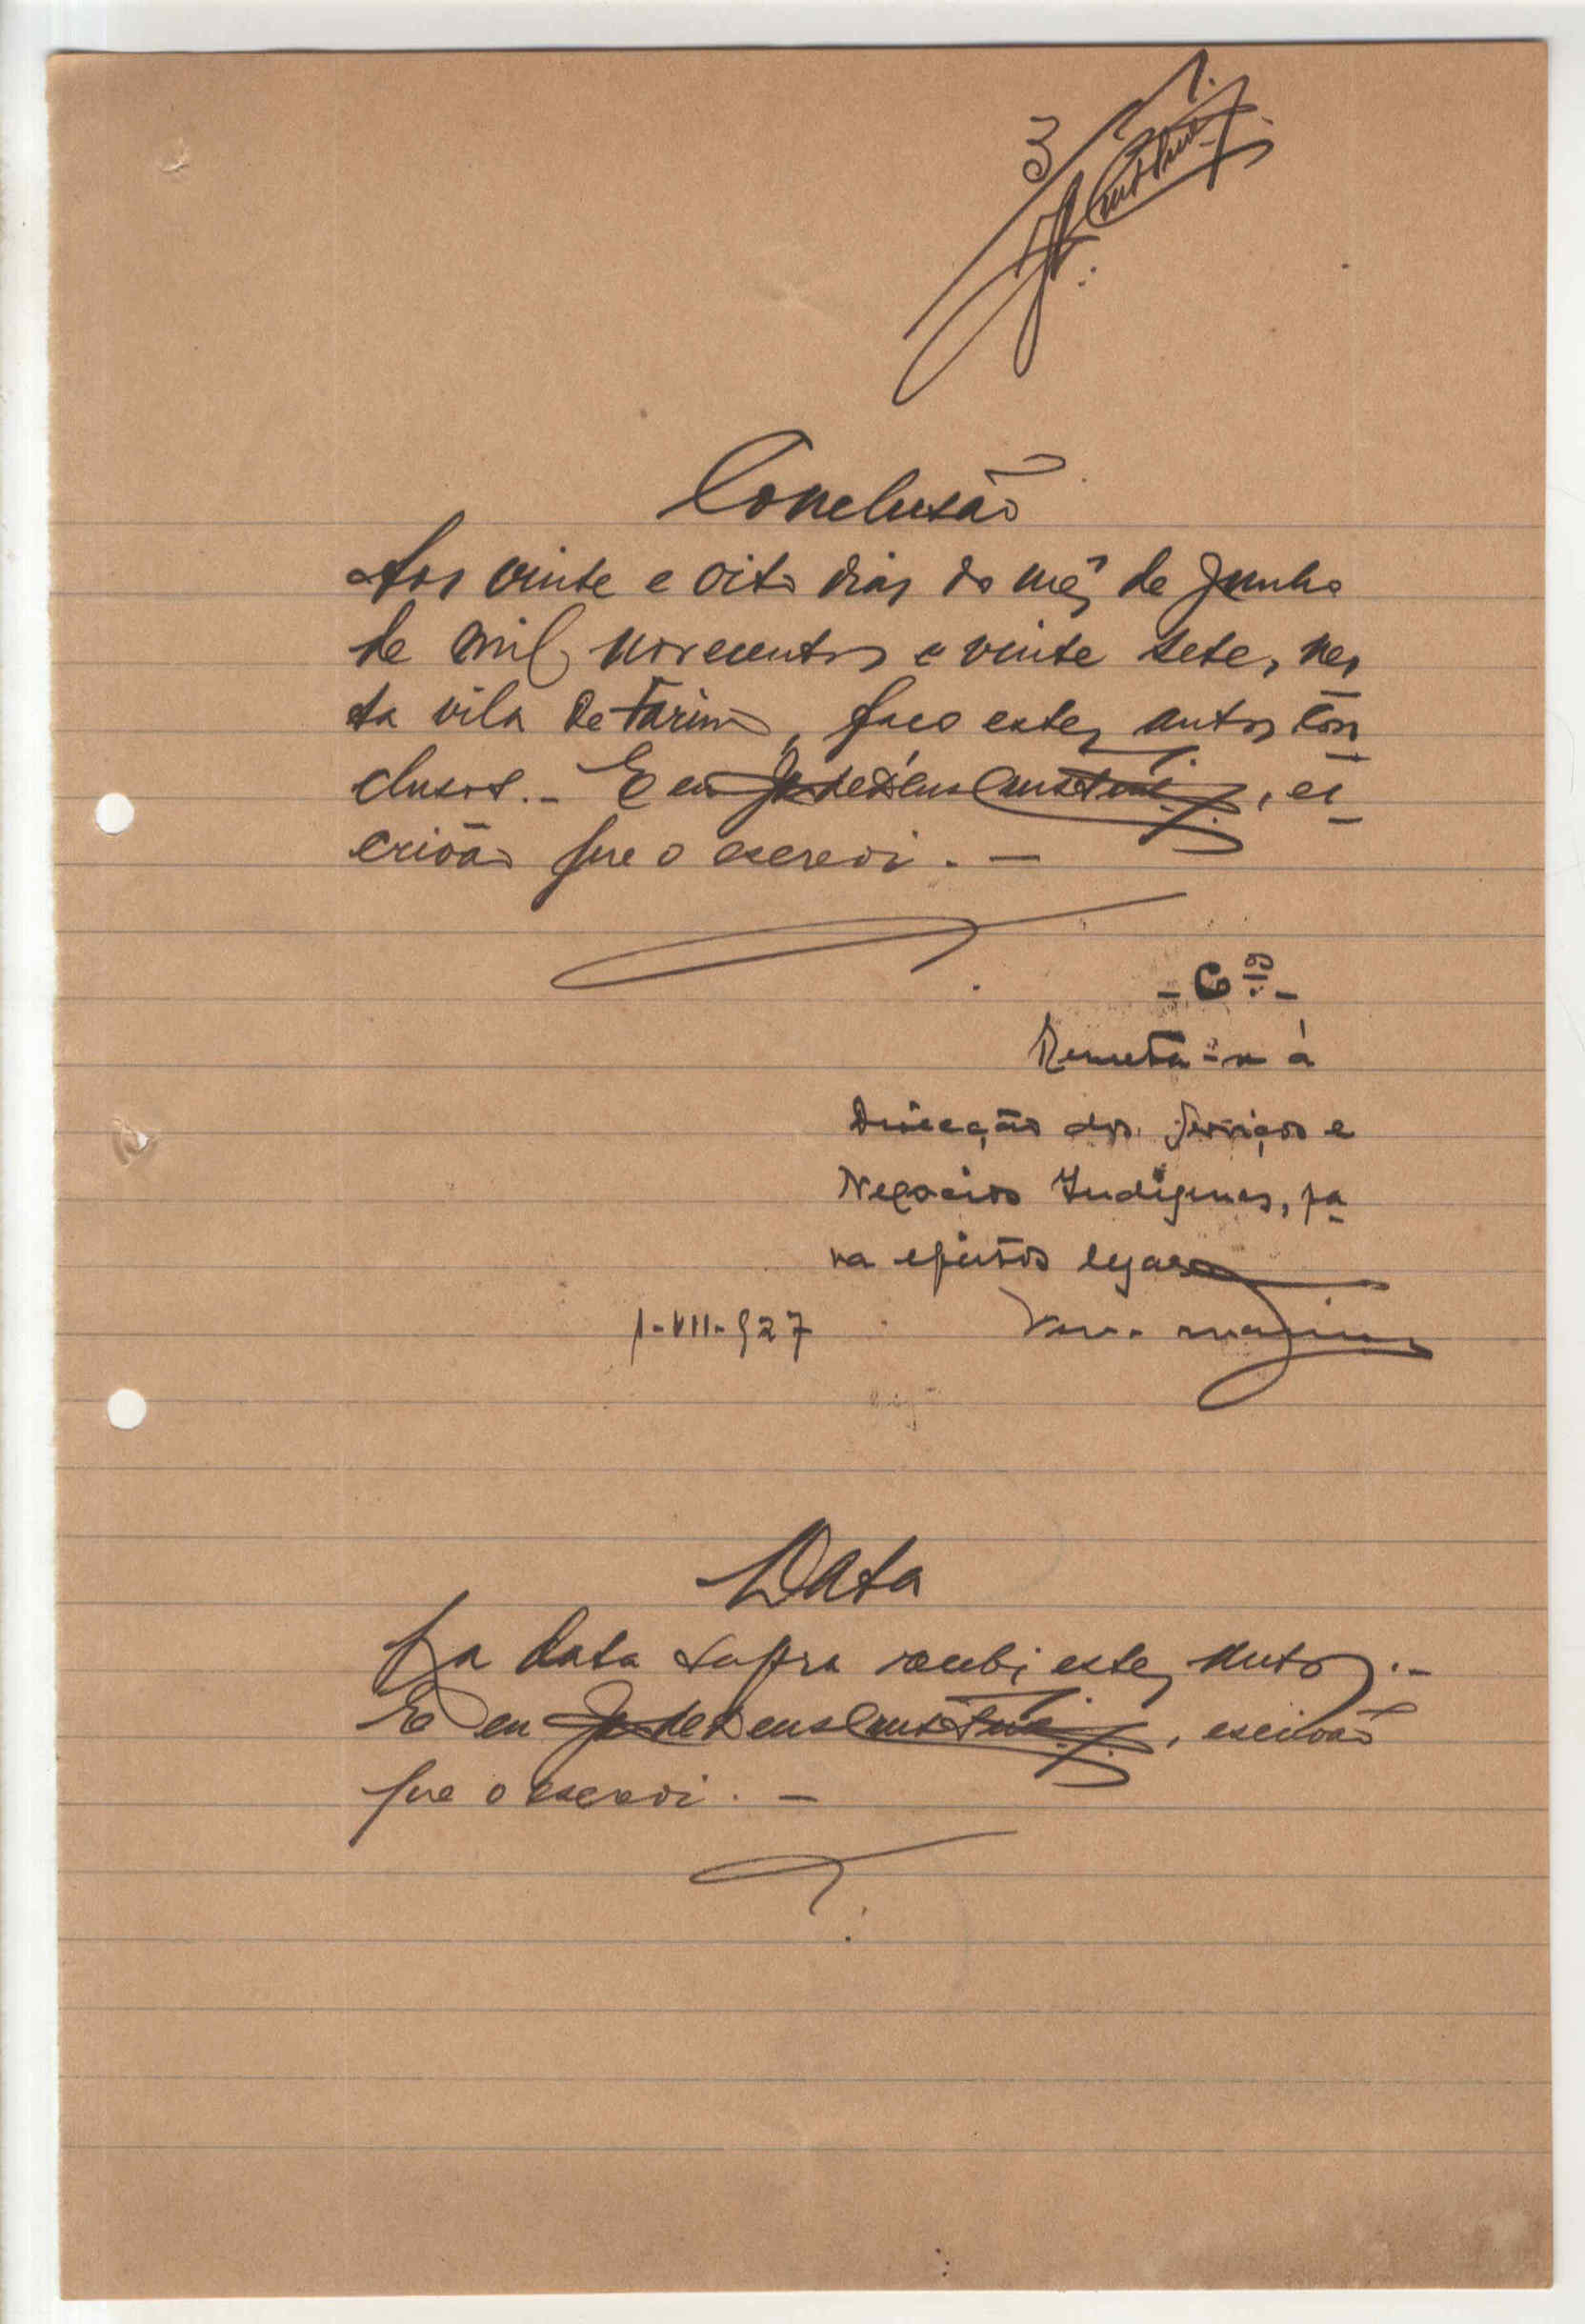 3
Conclusão
Aos vinte e oito dias do mês de Junho
de mil novecentos e vinte sete, nes
ta vila de Farim, faço estes autos con
clusos.- E eu João de Deus, es
crivão que o escrevi. -
Remeta-se á
Direcção dos Serviços e
Negocios Indigenas, pa
ra efeitos legaes
1-VII-927
Data
Na data supra recebi estes autos.-
E eu João de Deus, escrivão
que o escrevi. -